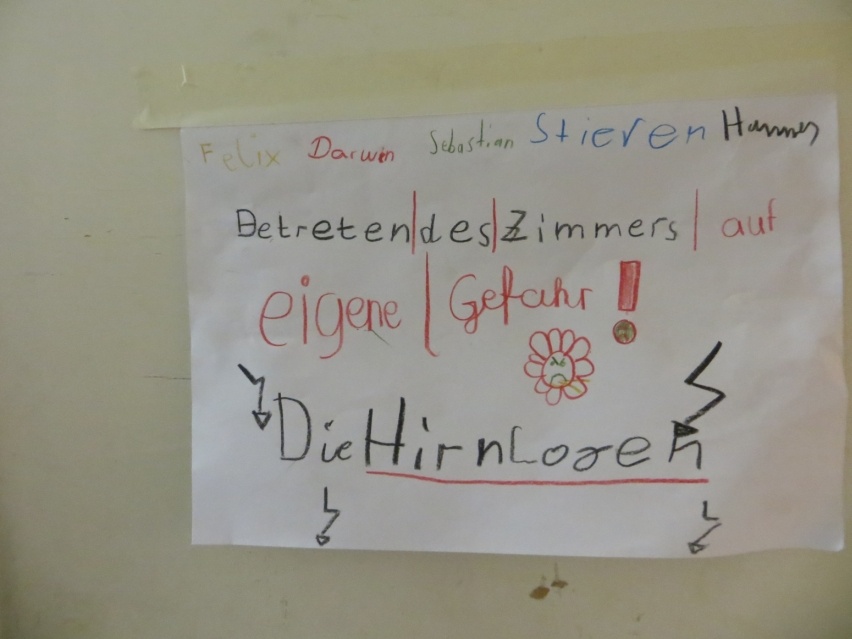 Felix Darwin Sebastian Stieven Hannes
Betreten|des|Zimmers|auf
eigene|Gefahr!
Die Hirnlosen